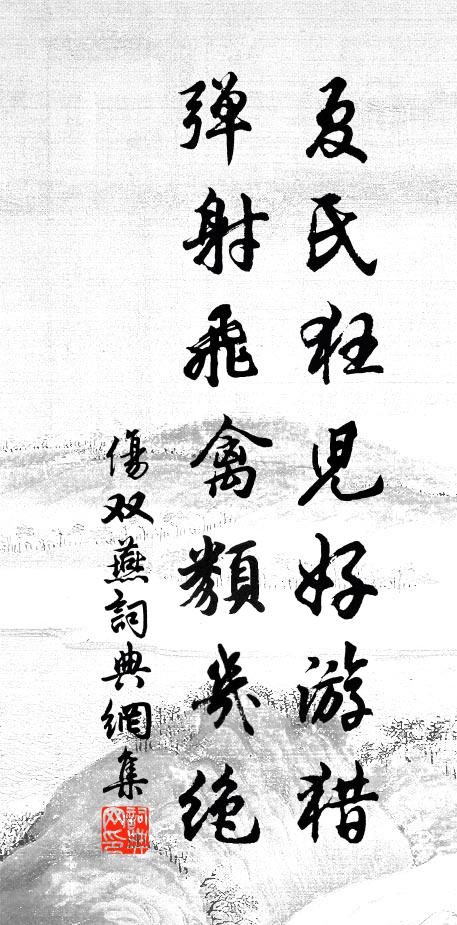 夏氏狂児好游猎
弹射飛禽類幾绝
傷双燕詞典網集
詞典网印